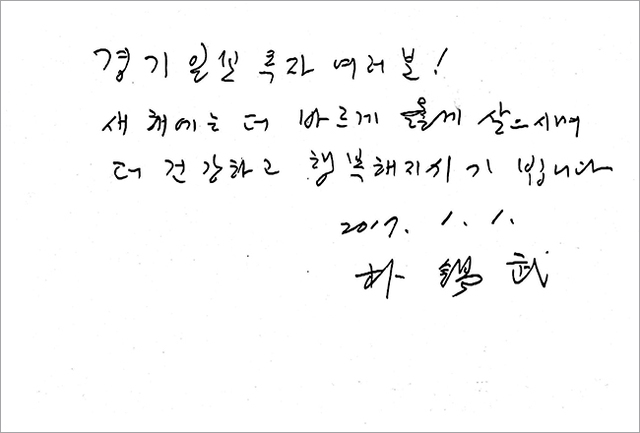 경기일보 독자 여러분!
새해에는 더 바르게 옳게 살으시며
더 건강하고 행복해지시기 빕니다
2017. 1. 1.
朴錫武